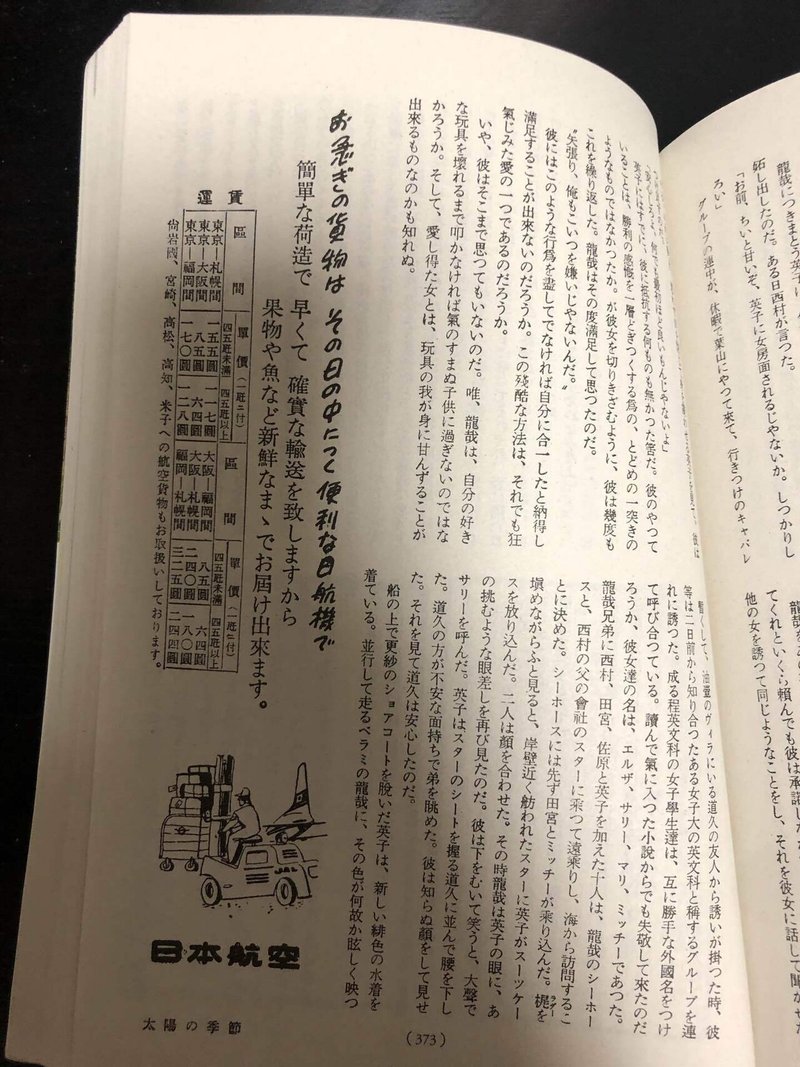 龍哉につきまとう英子に、
妬し出したのだ。ある日西村が言つた。
「お前、ちいと甘いぞ、英子に女房面されるじゃないか。しつかりし
ろい」
グループの連中が、休暇で葉山にやつて来て、行きつけのキャバレ
てくれといくら頼んでも彼は承諾した
他の女を誘つて同じようなことをし、それを彼女に話して聞かせた
英子にはすでに、彼に抵抗する何ものも無かつた筈だ。彼のやつて
いることは、勝利の感慨を一層どぎつくする爲の、とどめの一突きの
ようなものではなかつたか。が彼女を切りきざむように、彼は幾度も
これを繰り返した。龍哉はその度滿足して思つたのだ。
〝矢張り、俺もこいつを嫌いじゃないんだ。〟
彼にはこのような行爲を盡してでなければ自分に合一したと納得し
滿足することが出來ないのだろうか。この残酷な方法は、それでも狂
氣じみた愛の一つであるのだろうか。
いや、彼はそこまで思つてもいないのだ。唯、龍哉は、自分の好き
な玩具を壞れるまで叩かなければ氣のすまぬ子供に過ぎないのではな
かろうか。そして、愛し得た女とは、玩具の我が身に甘んずることが
出來るものなのかも知れぬ。
暫くして、油壺のヴィラにいる道久の友人から誘いが掛つた時、彼
等は二日前から知り合つたある女子大の英文科と稱するグループを連
れに誘つた。成る程英文科の女子學生達は、互に勝手な外國名をつけ
て呼び合つている。讀んで氣に入つた小說からでも失敬して來たのだ
ろうか、彼女達の名は、エルザ、サリー、マリ、ミッチーであつた。
龍哉兄弟に西村、田宮、佐原と英子を加えた十人は、龍哉のシーホー
スと、西村の父の會社のスターに乘つて遠乘りし、海から訪問するこ
とに決めた。シーホースには先ず田宮とミッチーが乘り込んだ。梶を
ラダー
塡めながらふと見ると、岸壁近く舫われたスターに英子がスーツケー
スを放り込んだ。二人は顏を合わせた。その時龍哉は英子の眼に、あ
の挑むような眼差しを再び見たのだ。彼は下をむいて笑うと、大聲で
サリーを呼んだ。英子はスターのシートを握る道久に並んで腰を下し
た。道久の方が不安な面持ちで弟を眺めた。彼は知らぬ顏をして見せ
た。それを見て道久は安心したのだ。
船の上で更紗のショアコートを脫いだ英子は、新しい緋色の水着を
着ている。並行して走るベラミの龍哉に、その色が何故か眩しく映つ
お急ぎの貨物は その日の中につく 便利な日航機で
簡單な荷造で 早くて 確實な輸送を致しますから
果物や魚など新鮮なまゝでお届け出來ます。
運賃
區間 單價(一瓩ニ付) 四五瓩未滿 四五瓩以上 區間 單價(一瓩ニ付) 四五瓩未滿 四五瓩以上
東京―札幌間 一五五圓 一一七圓 大阪―福岡間 八五圓 六四圓
東京―大阪間 八五圓 六四圓 大阪―札幌間 二四〇圓 一八〇圓
東京―福岡間 一七〇圓 一二八圓 福岡―札幌間 三二五圓 二四四圓
尙岩國、宮崎、高松、高知、米子への航空貨物もお取扱いしております。
日本航空
太陽の季節
(373)